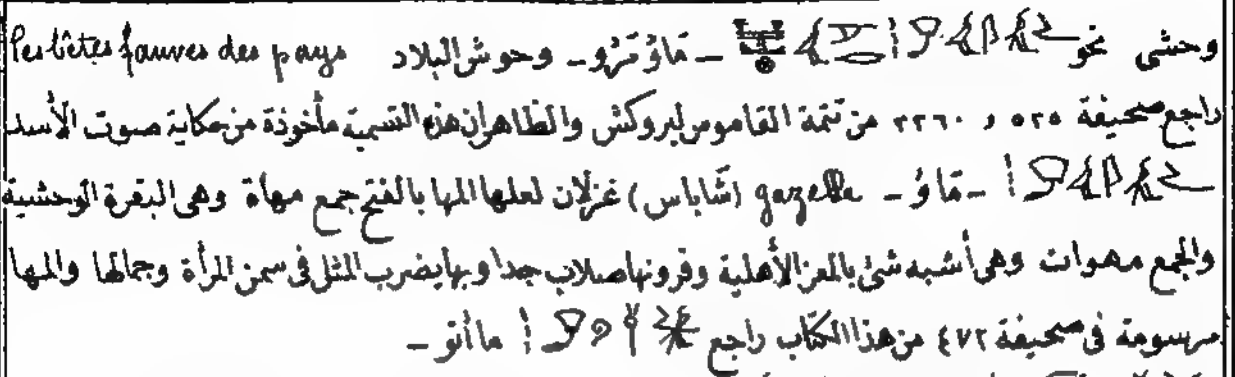 وحشى نحو ـ مَاوُتَرُو ـ وحوش البلاد Les bêtes fauves des pays
راجع صحيفة ٥٢٥ و ٢٢٦٠ من تتمة القاموس لبروكش والظاهران هذه التسمية مأخوذة من حكاية صوت الأسد
ـ مَاوُ ـ gazelle (شاباس) غزلان لعلها المها بالفتح جمع مهاة وهى البقرة الوحشية
والجمع مهوات وهى أشبه شئ بالمعز الأهلية وقرونها صلاب جدا وبها يضرب المثل فى سمن المرأة وجمالها والمها
مرسومة فى صحيفة ٤٧٢ من هذا الكتاب راجع ماأتو ـ